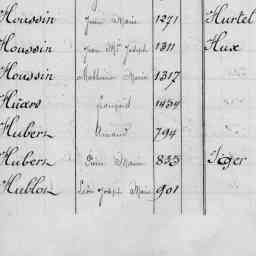 Houssin Jean Marie 1271 Hurtel
Houssin Jean Mie Joseph 1311 Hux
Houssin Mathurin Marie 1317
François 1434
Hubert Armand 794
Hubert Pierre Marie 833
Hublon Joseph Marie 901